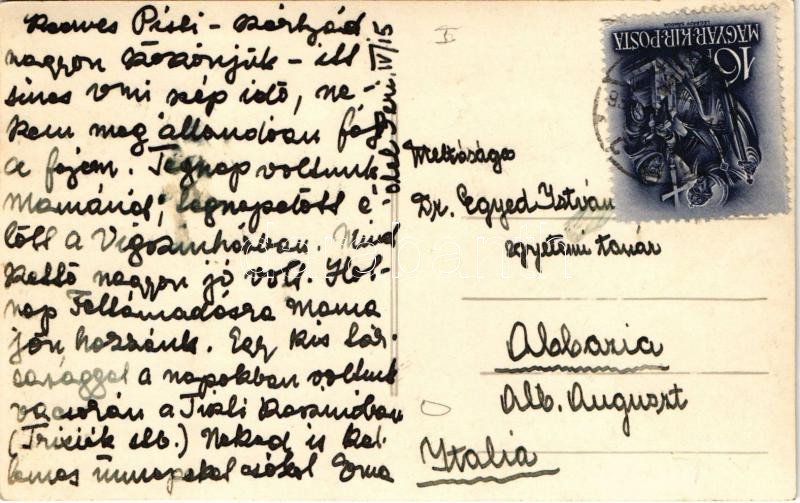 Kedves Pisti - kártyád
nagyon köszönjük - itt
sincs vmi szép idő, ne-
kem meg állandóan fáj
a fejem. Tegnap voltunk
Mamánál, tegnapelőtt e-
lőtt a Vígszínházban. Mind
kettő nagyon jó volt. Hol-
nap Feltámadásra Mama
jön hozzánk. Egy kis tár-
sasággal a napokban voltunk
vacsorán a Tiszti Kaszinóban
(Triciék stb.) Neked is kel-
lemes ünnepeket csókol
IV/15
II
MAGYAR·KIR·POSTA
16 f
Méltóságos
Dr. Egyed István
egyetemi tanár
Abbazia
Alb. Auguszt
Italia
darabanth